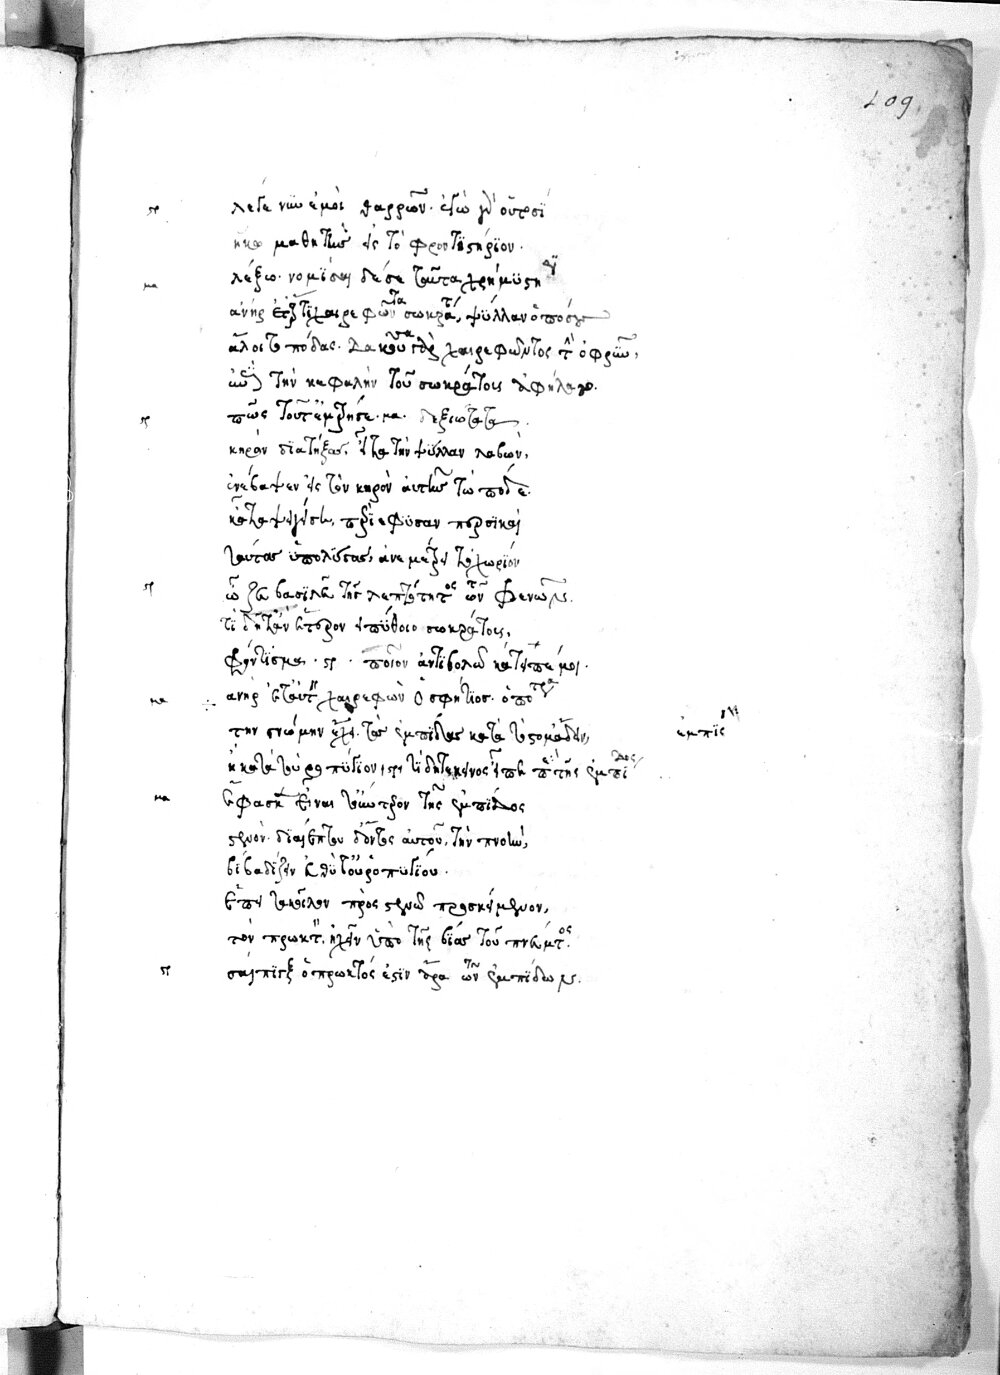 109
στ λέγε νῦν ἐμοὶ θαρρῶν· ἐγὼ γὰρ οὑτοσὶ
ἥκω μαθητὴς εἰς τὸ φροντιστήριον·
μα λέξω· νομίσαι δέ σε ταῦτα χρὴ μυστήρια
ἀνήρετ' ἄρτι χαιρεφῶντα σωκράτης, ψύλλαν ὁπόσους
ἅλοιτο πόδας· δακοῦσα γὰρ χαιρεφῶντος τὴν ὀφρῦν,
ἐπὶ τὴν κεφαλὴν τοῦ σωκράτους ἀφήλατο·
στ πῶς τοῦτ' ἐμέτρησε· μα· δεξιώτατα
κηρὸν διατήξας, εἶτα τὴν ψύλλαν λαβὼν,
ἐνέβαψεν εἰς τὸν κηρὸν αὐτῆς τὼ πόδε·
κᾆτα ψυγείσῃ, περιέφυσαν περσικαὶ
ταύτας ὑπολύσας, ἀνεμέτρει τὸ χωρίον
στ ὦ ζεῦ βασιλεῦ τῆς λεπτότητος τῶν φρενῶν·
τί δῆτ' ἂν ἕτερον εἰ πύθοιο σωκράτους,
φρόντισμα· στ· ποῖον ἀντιβολῶ κάτειπέ μοι·
μα ἀνήρετ' αὐτὸν χαιρεφῶν ὁ σφήττιος· ὁπότερα
τὴν γνώμην ἔχει· τὰς ἐμπίδας κατὰ τὸ στόμ' ᾄδειν,
ἐμπὶς
ἢ κατὰ τοὐροπύγιον· στ· τί δῆτ' ἐκεῖνος εἶπε περὶ τῆς ἐμπίδος
μα ἔφασκεν εἶναι τοὔντερον τῆς ἐμπίδος
στενόν· διὰ λεπτοῦ δ' ὄντος αὐτοῦ, τὴν πνοὴν,
βίᾳ βαδίζειν εὐθὺ τοὐροπυγίου·
ἔπειτα κοῖλον πρὸς στενῷ προσκείμενον,
τὸν πρωκτὸν ἠχεῖν ὑπὸ τῆς βίας τοῦ πνεύματος·
στ σάλπιγξ ὁ πρωκτός ἐστιν ἄρα τῶν ἐμπίδων·